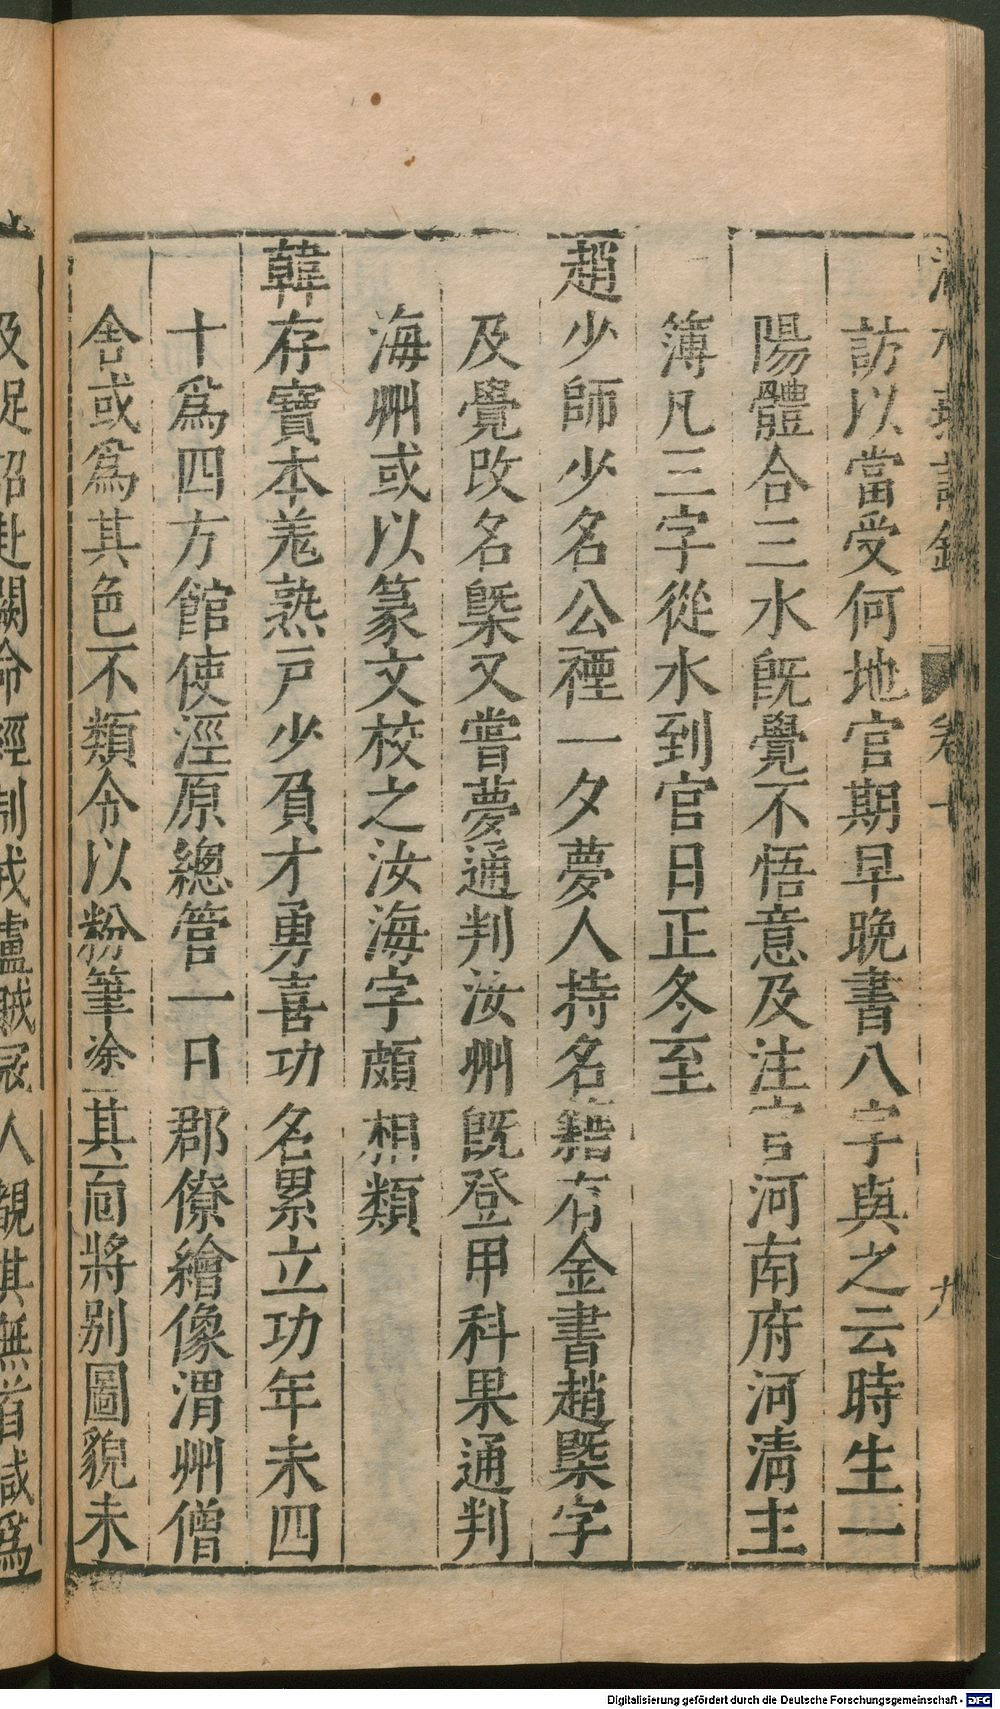 訪以當受何地官期早晚書八字與之云時生一
陽體合三水旣覺不悟意及注官河南府河清主
簿凡三字從水到官日正冬至
趙少師少名公禋一夕夢人持名籍有金書趙槩字
及覺改名槩又嘗夢通判汝州旣登甲科果通判
海州或以篆文校之汝海字頗相類
韓存寶本羗熟戸少負才勇喜功名累立功年未四
十爲四方館使涇原總管一日郡僚繪像渭州僧
舍或爲其色不類令以粉筆塗其面將别圖貌未
及促詔赴闕命經制戎瀘賊冦人覩其無首咸爲
Digitalisierung gefördert durch die Deutsche Forschungsgemeinschaft - DFG